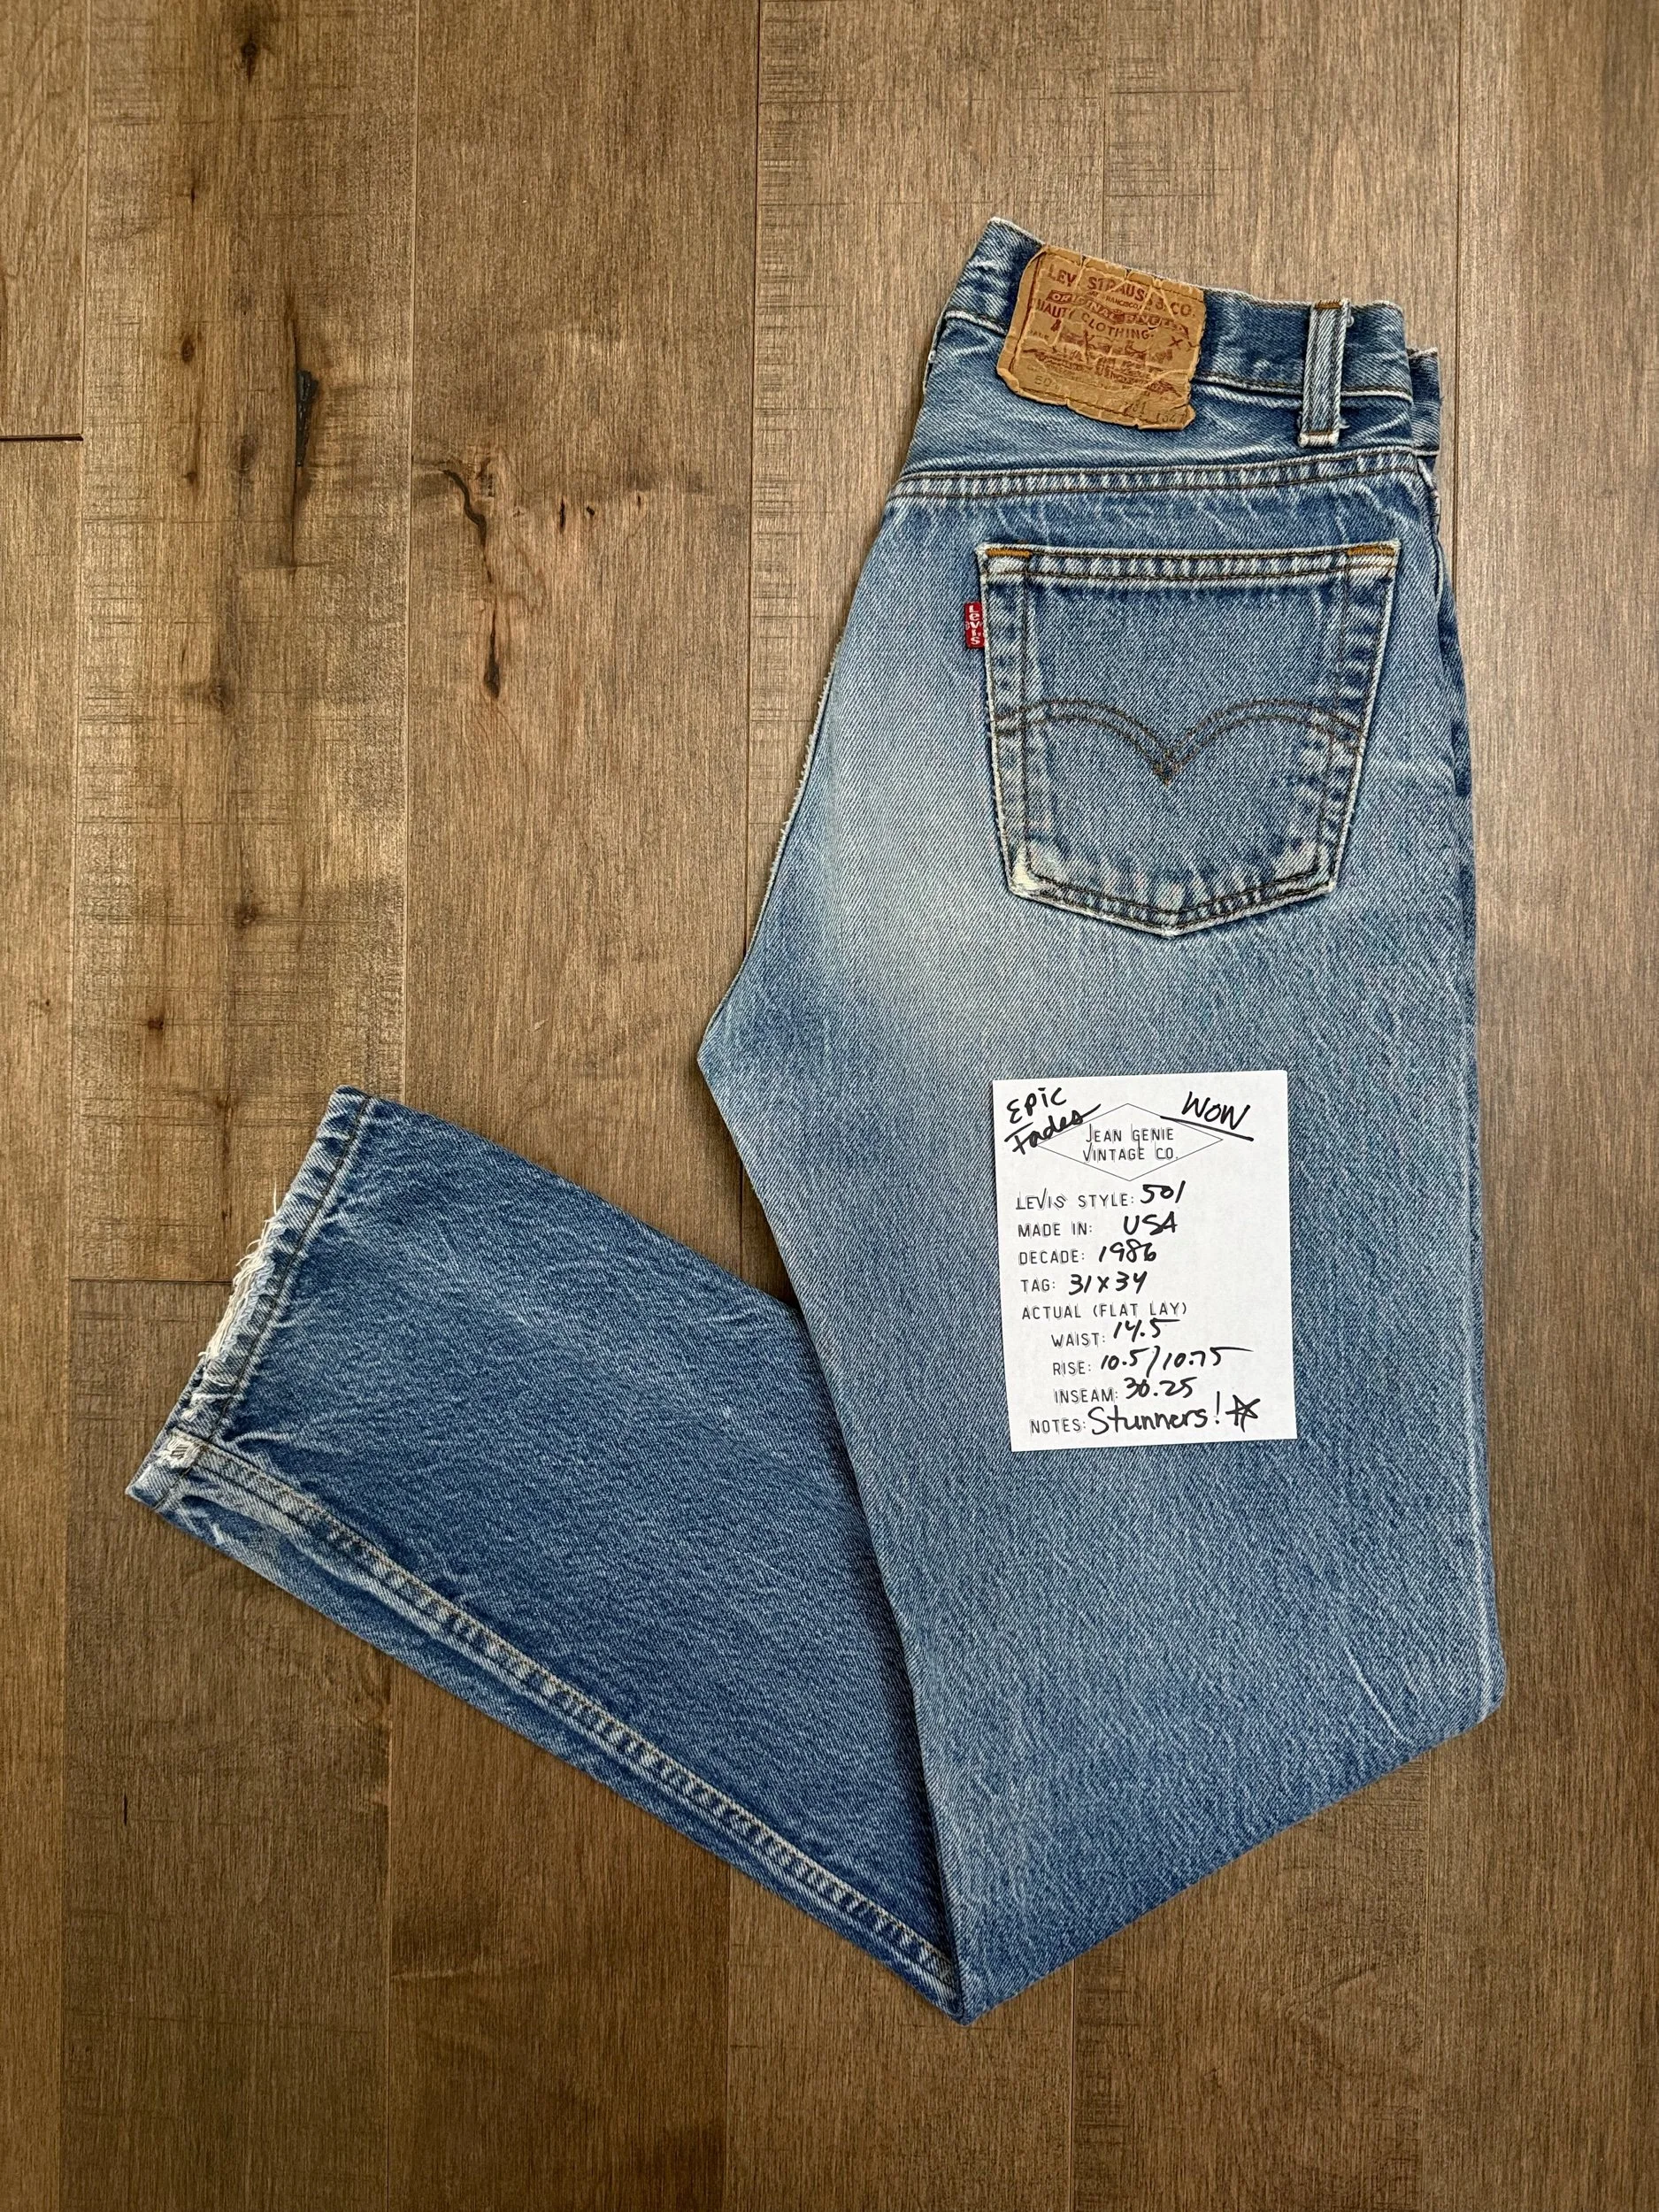 LEVI STRAUSS & CO.
QUALITY CLOTHING
501
Levi's
EPIC
Fades
WOW
JEAN GENIE
VINTAGE CO.
LEVIS STYLE: 501
MADE IN: USA
DECADE: 1986
TAG: 31x34
ACTUAL (FLAT LAY)
WAIST: 14.5
RISE: 10.5/10.75
INSEAM: 30.25
NOTES: Stunners!